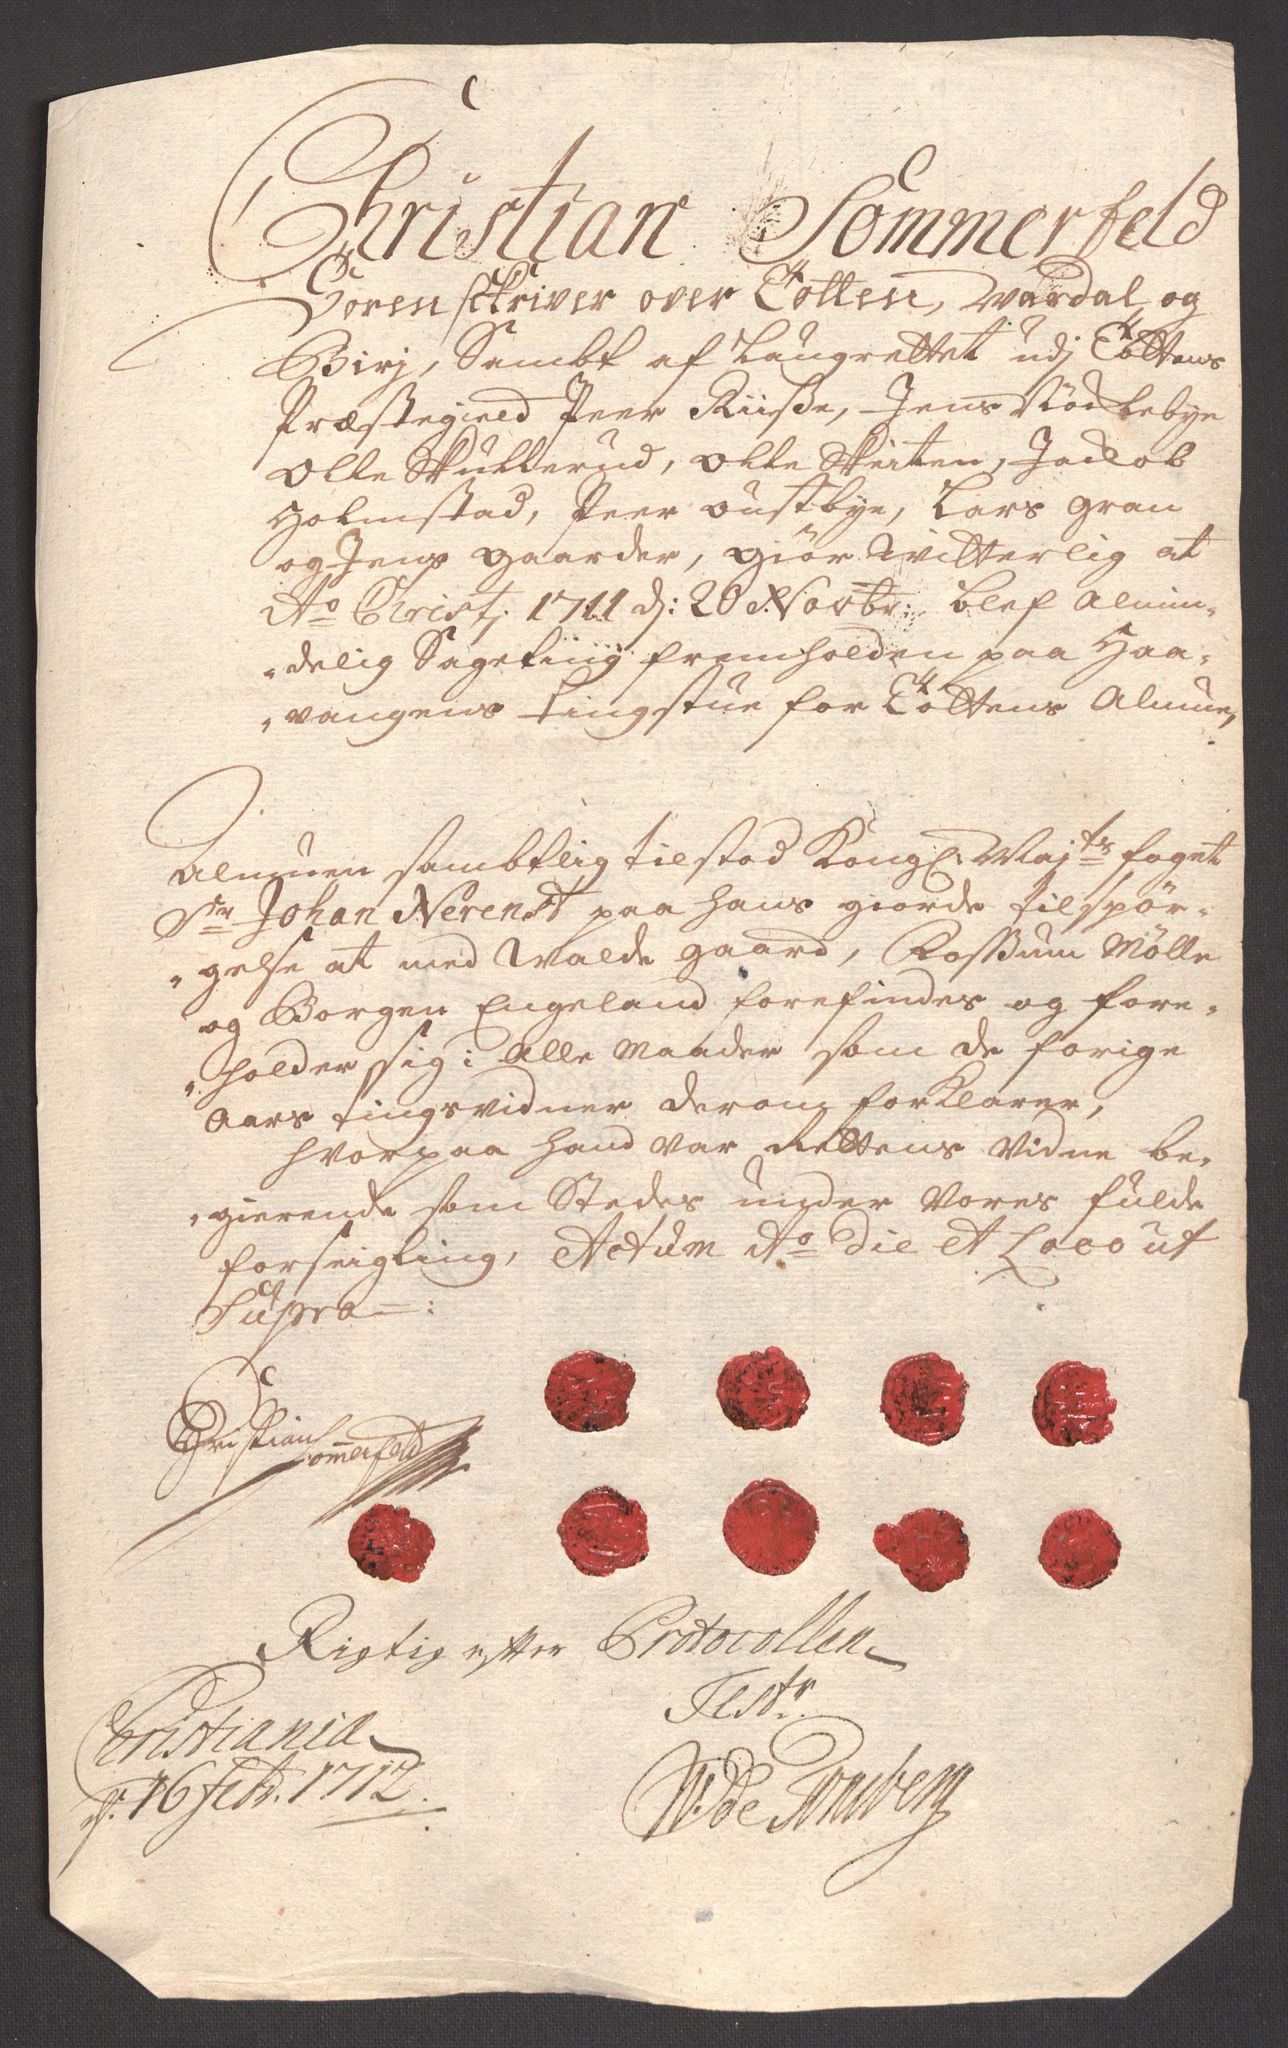 Christian Sommerfeld
Sorenskriver over Totten, Wardal og
Birj, Sambt af Laugrettet udj Tottens
Præstegield Peer Riisße, Jens Nödlebye
Olle Skullerud, Olle Skirten, Jacob
Holmstad, Peer Oustbye, Lars Gran
og Jens Gaarder, giör Witterlig at
Ao Christj 1711 d: 20 Novbr: blef Almin„
„delig Sageting fremholden paa Haa„
„vangens tingstue for Tottens Almue,
Almuen sambtlig tilstod Kongl: Maj:ts foget
Sr Johan Nerenst paa hans giorde tilspör„
„gelse at med Walde gaard, Rosßum Mölle
og Borgen Engeland forefindes og fore„
„holder sig i Alle Maader som de forige
Aars tingsvidner derom forklarer,
hvorpaa hand var Rettens Vidne be„
„gierende som Stedes under Vores fulde
forseigling, Actum Ao die et Loco ut
Supra
Christian Sommerfeld
Rigtig efter Protocollen
Test:
Christiania
d. 16 Febr. 1712.
W de Tonsberg